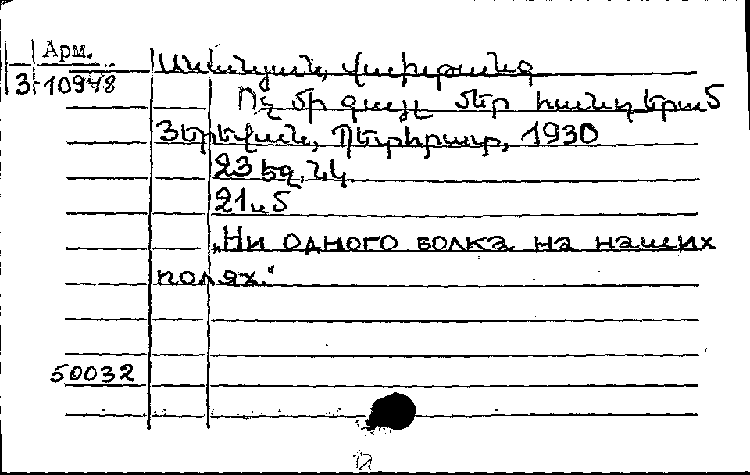 Арм.
3-10948
Անանյան, Վախթանգ
Ոչ մի գայլ մեր հանդերում
Յերեվան, Պետհրատ, 1930
23 եջ. նկ.
21 սմ
„Ни одного волка на наших
полях."
50032